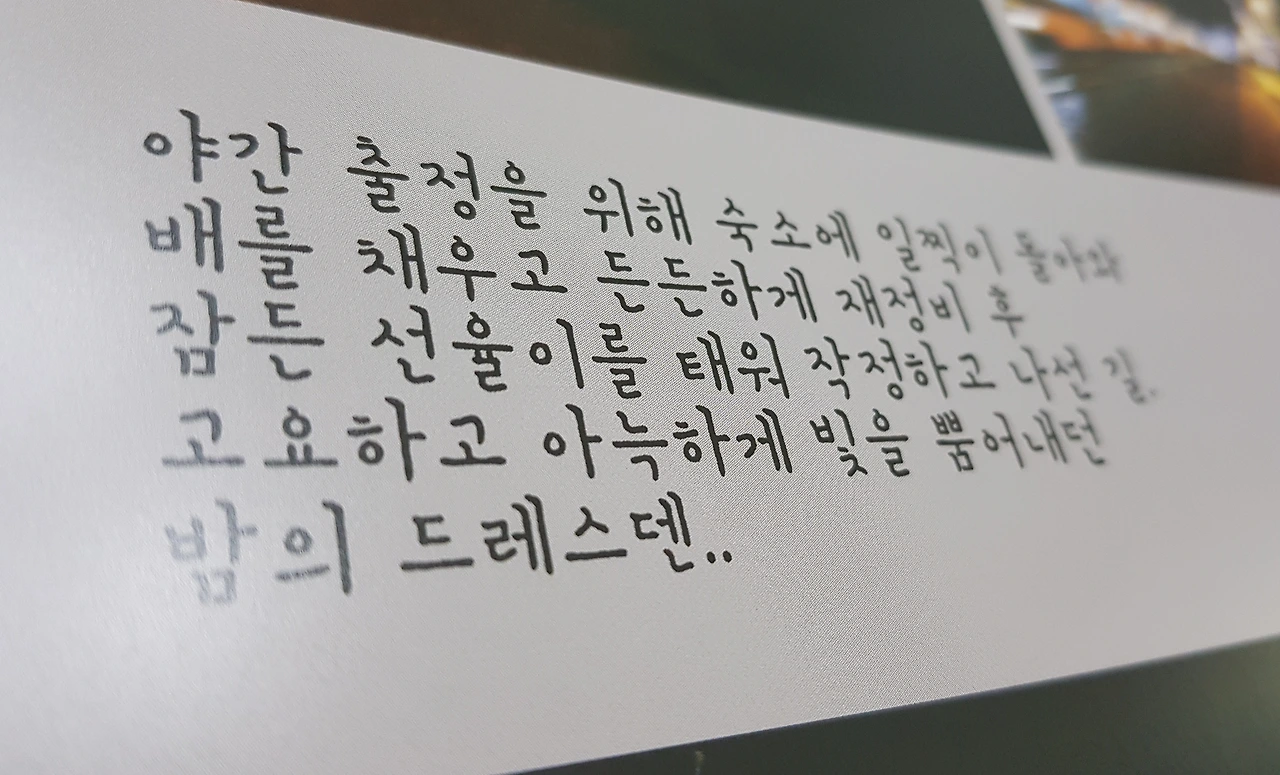 야간 출정을 위해 숙소에 일찍이 돌아와
배를 채우고 든든하게 재정비 후
잠든 선율이를 태워 작정하고 나선 길.
고요하고 아늑하게 빛을 뿜어내던
밤의 드레스덴..